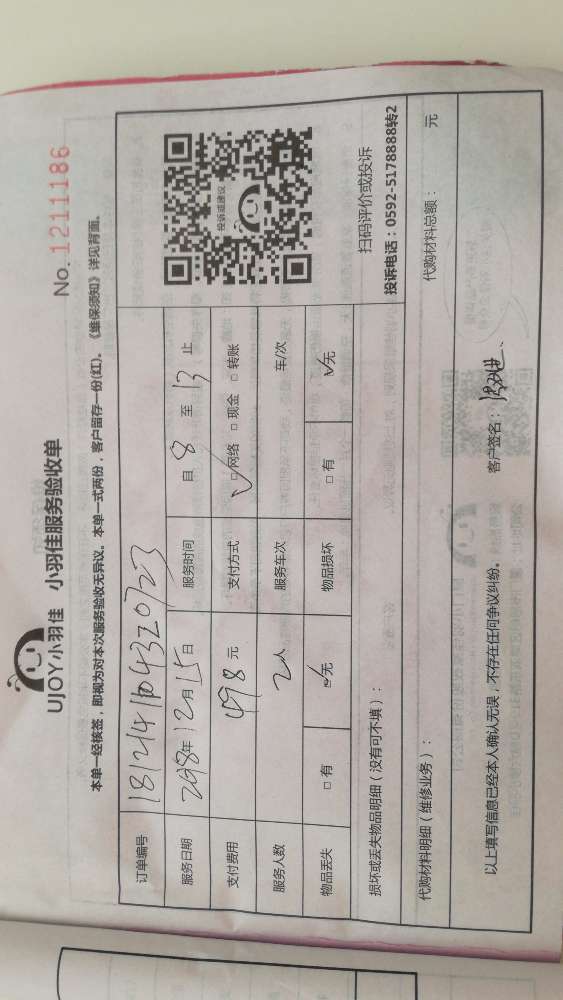 UJOY小羽佳 小羽佳服务验收单
No. 1211186
本单一经核签，即视为对本次服务验收无异议。本单一式两份，客户留存一份(红)。《维保须知》详见背面。
订单编号
服务日期 2018年12月15日 服务时间 自 8 至 13 止
支付费用 498 元 支付方式 ☑网络 □现金 □转账
服务人数 2人 服务车次 车/次
物品丢失 □有 ☑无 物品损坏 □有 ☑无
投诉或建议
扫码评价或投诉
投诉电话：0592-5178888转2
损坏或丢失物品明细（没有可不填）：
代购材料明细（维修业务）： 代购材料总额： 元
以上填写信息已经本人确认无误，不存在任何争议纠纷。 客户签名：